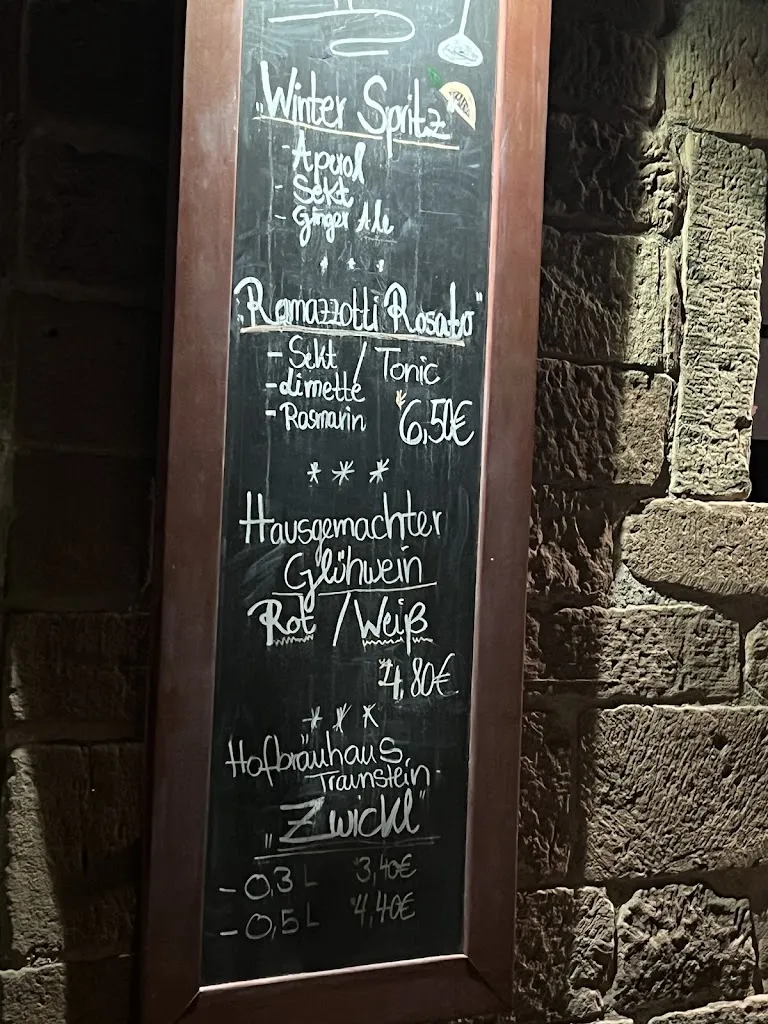 „Winter Spritz"
- Aperol
- Sekt
- Ginger Ale
* * *
„Ramazzotti Rosato"
- Sekt / Tonic
- Limette
- Rosmarin 6,50€
* * *
Hausgemachter
Glühwein
Rot / Weiß
4,80€
* * *
Hofbräuhaus
Traunstein
„Zwickl"
- 0,3 L 3,40€
- 0,5 L 4,40€